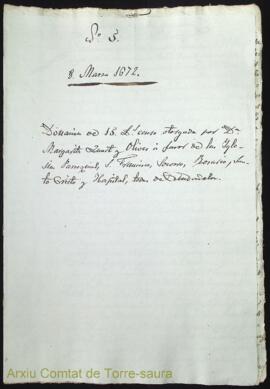 Nº 5.
8 Marzo 1672.
Donacion de 15 L.s censo otorgada por D.ª
Margarita Quart y Olives á favor de las Igle-
sias Parroquial, S. Francisco, Socorro, Rosario, San-
to Cristo y Hospital, todas de Ciudadela.
Arxiu Comtat de Torre-saura